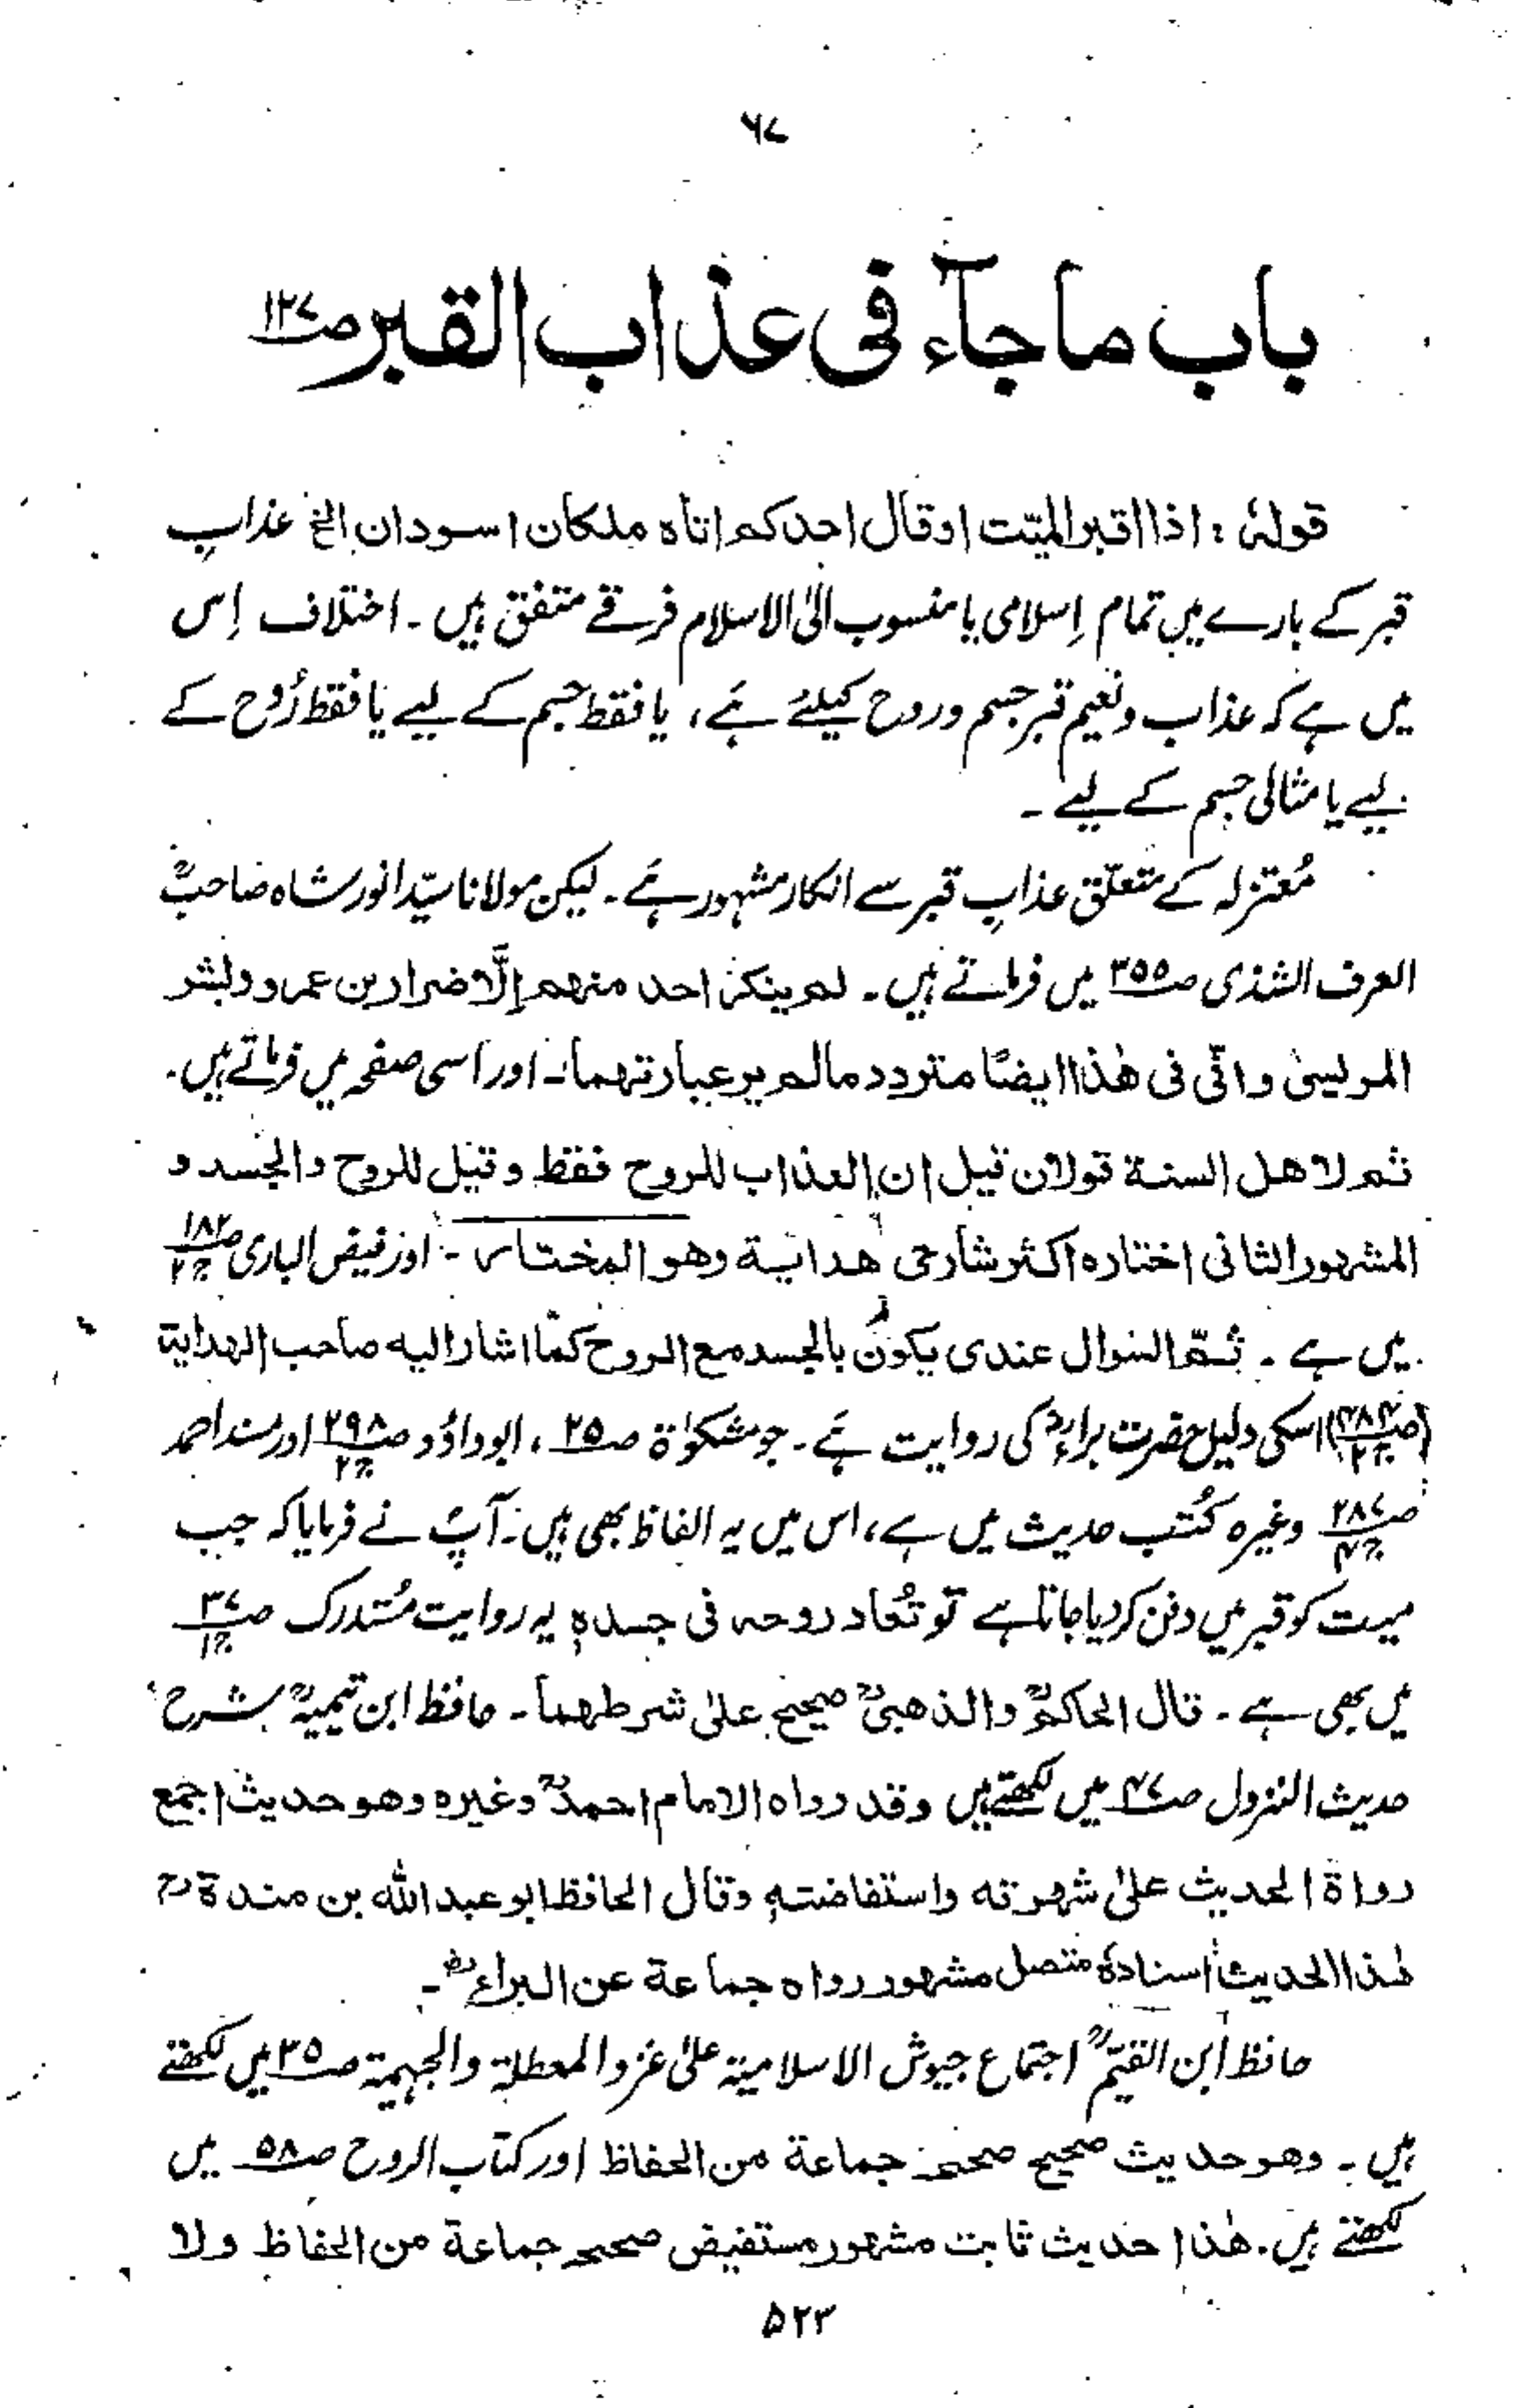 ۶۷
باب ما جآء فی عذاب القبر ص۱۲۷
قولہٗ : اذا اقبر المیّت او قال احدکم اتاہ ملکان اسودان الخ عذابِ
قبر کے بارے میں تمام اِسلامی یا منسوب الیٰ الاسلام فرقے متفق ہیں ۔ اختلاف اِس
میں ہے کہ عذاب و نعیم قبر جسم و روح کیلئے ہَے ، یا فقط جسم کے لیے یا فقط رُوح کے
لیے یا مثالی جسم کے لیے ۔
مُعتزلہ کے متعلّق عذابِ قبر سے انکار مشہور ہَے ۔ لیکن مولانا سیّد انور شاہ صاحبؒ
العرف الشذی ص۳۵۵ میں فرماتے ہیں ۔ لم ینکر احد منہم اِلَّا ضرار بن عمرو و بشر
المریسی وانّی فی ھٰذا ایضًا متردد مالم یر عبارتہما ۔ اور اسی صفحہ میں فرماتے ہیں ۔
ثم لاھل السنۃ قولان قیل ان العذاب للروح فقط و قیل للروح والجسد و
المشہور الثانی اختارہ اکثر شارحی ھدایۃ وھو المختار ۔ اور فیض الباری ص۱۸۲ ج۲
میں ہے ۔ ثمّ السُوال عندی یکون بالجسد مع الروح کما اشار الیہ صاحب الہدایۃ
(ص۴۸۴ ج۲) اسکی دلیل حضرت براءؓ کی روایت ہَے ۔ جو مشکوٰۃ ص۲۵ ، ابوداؤد ص۲۹۸ ج۲ اور مسند احمد
ص۲۸۷ ج۴ وغیرہ کُتب حدیث میں ہے ، اس میں یہ الفاظ بھی ہیں ۔ آپؐ نے فرمایا کہ جب
میت کو قبر میں دفن کر دیا جاتا ہے تو تُعاد روحہ فی جسدہٖ یہ روایت مُستدرک ص۳۷ ج۱
میں بھی ہے ۔ قال الحاکمؒ والذھبیؒ صحیح علیٰ شرطہما ۔ حافظ ابن تیمیہؒ بشرح
حدیث النزول ص۴۷ میں لکھتے ہیں وقد رواہ الامام احمدؒ وغیرہ وھو حدیث اجمع
رواۃ الحدیث علیٰ شہرتہ واستفاضتہٖ وقال الحافظ ابو عبداللہ بن مندۃؒ
ھٰذا الحدیث اسنادہٗ متصل مشہور رواہ جماعۃ عن البراءؓ ۔
حافظ ابن القیّمؒ اجتماع جیوش الاسلامیۃ علیٰ غزو المعطلۃ والجہمیۃ ص۳۵ میں لکھتے
ہیں ۔ وھو حدیث صحیح صححہ جماعۃ من الحفاظ اور کتاب الروح ص۵۸ میں
لکھتے ہیں ۔ ھٰذا حدیث ثابت مشہور مستفیض صححہ جماعۃ من الحفاظ ولا
۵۲۳